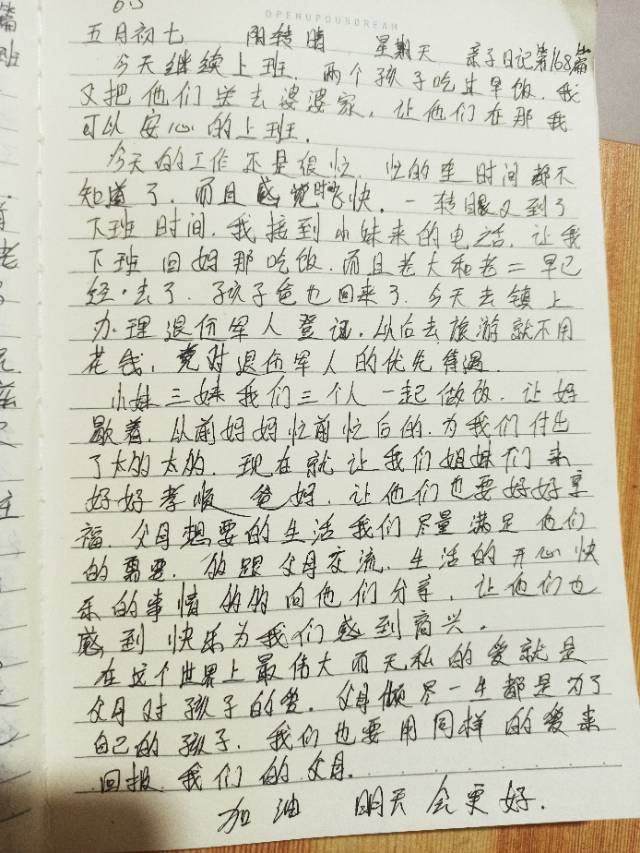 OPENUPOUSDREAM
五月初七 阴转晴 星期天 亲子日记第168篇
今天继续上班.两个孩子吃过早饭.我
又把他们送去婆婆家,让他们在那我
可以安心的上班.
今天的工作不是很忙.忙的连时间都不
知道了.而且感觉时快.一转眼又到了
下班时间.我接到小妹来的电话.让我
下班回妈那吃饭.而且老大和老二早已
经去了.孩子爸也回来了.今天去镇上
办理退伍军人登记.以后去旅游就不用
花钱,竟对退伍军人的优先待遇.
小妹三妹我们三个人一起做饭.让妈
歇着.从前妈妈忙前忙后的.为我们付出
了太多太多.现在就让我们姐妹们来
好好孝顺爸妈.让他们也要好好享
福.父母想要的生活我们尽量满足他们
的需要.多跟父母交流.生活的开心快
乐的事情多多向他们分享,让他们也
感到快乐为我们感到高兴.
在这个世界上最伟大而无私的爱就是
父母对孩子的爱.父母倾尽一生都是为了
自己的孩子.我们也要用同样的爱来
回报我们的父母.
加油 明天会更好.